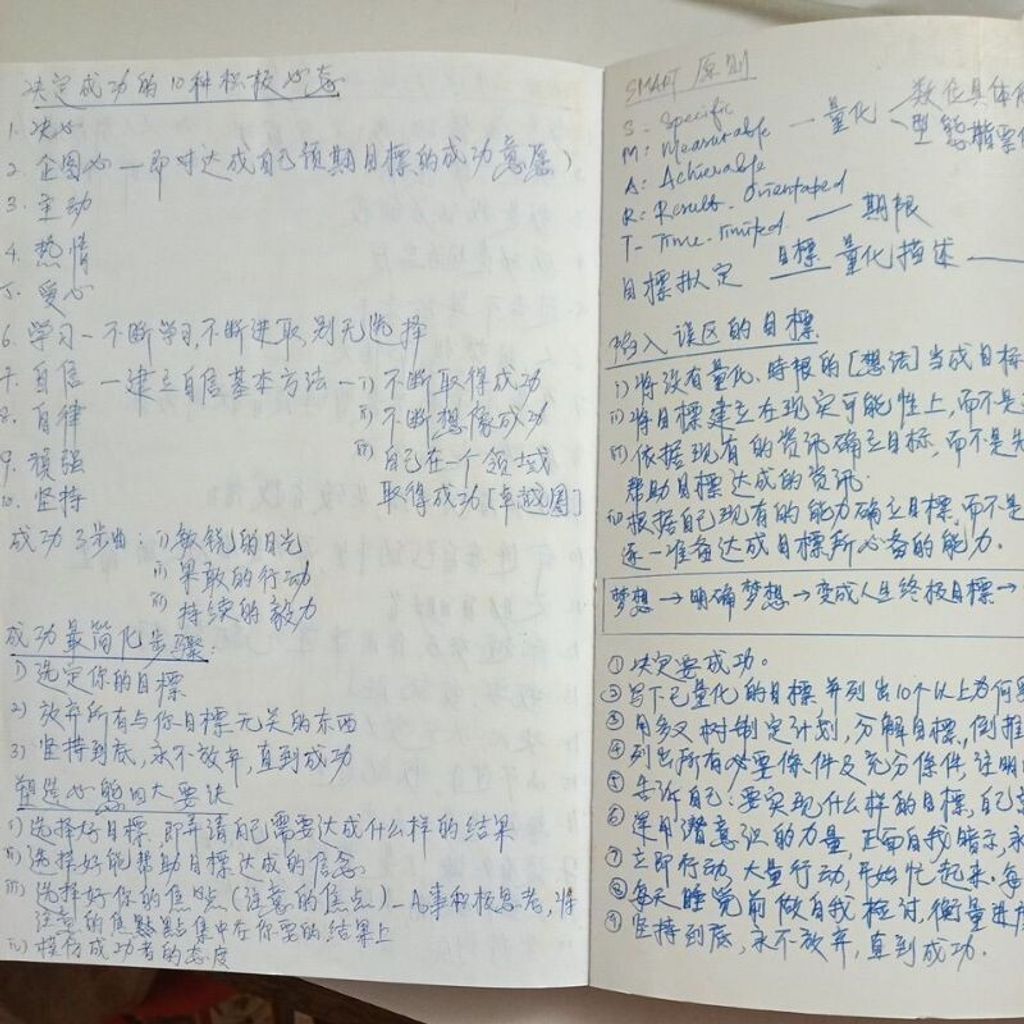 决定成功的10种积极心态
1. 决心
2. 企图心 — 即对达成自己预期目標的成功意愿)
3. 主动
4. 热情
5. 爱心
6. 学习 — 不断学习,不断进取,别无选择
7. 自信 — 建立自信基本方法 — i) 不断取得成功
8. 自律 ii) 不断想像成功
9. 顽强 iii) 自己在一个领域
10. 坚持 取得成功[卓越圈]
成功3步曲: i) 敏锐的目光
ii) 果敢的行动
iii) 持续的毅力
成功最简化步骤:
1) 选定你的目標
2) 放弃所有与你目標无关的东西
3) 坚持到底,永不放弃,直到成功
塑造心態四大要诀
i) 选择好目標,即弄清自己需要达成什么样的结果
ii) 选择好能帮助目標达成的信念
iii) 选择好你的焦点(注意的焦点) — 凡事积极思考,将
注意的焦點集中在你要的结果上
iv) 模仿成功者的态度
SMART 原则
S: Specific
M: Measurable — 量化 < 数位具体化
型態指票
A: Achievable
R: Result-Orientated
T- Time-limited — 期限
目標拟定 目標 量化描述 —
陷入误区的目標
i) 将没有量化、時限的[想法]当成目标
ii) 将目標建立在现实可能性上,而不是
iii) 依据现有的资讯确立目标,而不是先
帮助目標达成的资讯.
iv) 根据自己现有的能力确立目標,而不是
逐一准备达成目標所必备的能力.
梦想 → 明确梦想 → 变成人生终极目標 →
① 决定要成功。
② 写下已量化的目標,并列出10个以上为何要
③ 用多叉树制定计划,分解目標,倒推
④ 列出所有必要條件及充分條件,注明
⑤ 告诉自己:要实现什么样的目標,自己
⑥ 運用潜意识的力量,正面自我暗示,永
⑦ 立即行动,大量行动,开始忙起来.每
⑧ 每天睡觉前做自我检讨,衡量进度
⑨ 坚持到底,永不放弃,直到成功.